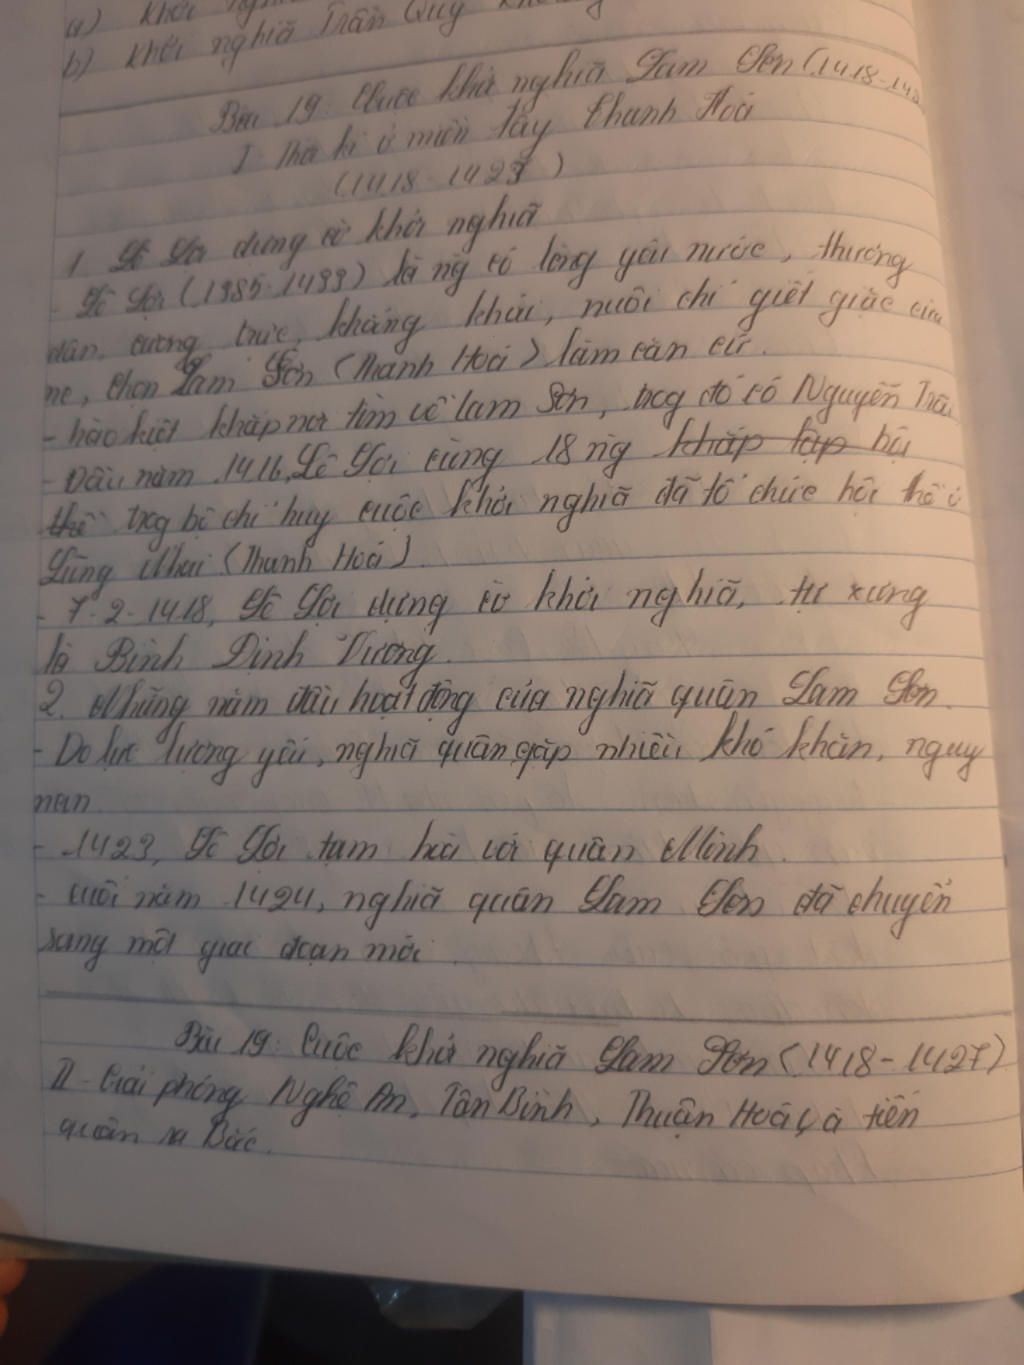 a) Khởi
b) Khởi nghĩa Trần Quý
Bài 19: Cuộc khởi nghĩa Lam Sơn (1418-142
I. Thời kì ở miền Tây Thanh Hoá
(1418-1423)
1 Lê Lợi dựng cờ khởi nghĩa
- Lê Lợi (1385-1433) là ng có lòng yêu nước, thương
dân, cương trực, khảng khái, nuôi chí giết giặc cứu
nc, chọn Lam Sơn (Thanh Hoá) làm căn cứ.
- hào kiệt khắp nơi tìm về lam Sơn, trog đó có Nguyễn Trãi
- Đầu năm 1416, Lê Lợi cùng 18 ng khắp lập hội
thề trog bộ chỉ huy cuộc khởi nghĩa đã tổ chức hội thề ở
Lũng Nhai (Thanh Hoá).
- 7-2-1418, Lê Lợi dựng cờ khởi nghĩa, tự xưng
là Bình Định Vương.
2. Những năm đầu hoạt động của nghĩa quân Lam Sơn.
- Do lực lượng yếu, nghĩa quân gặp nhiều khó khăn, nguy
nan.
- 1423, Lê Lợi tạm hoà với quân Minh.
- cuối năm 1424, nghĩa quân Lam Sơn đã chuyển
sang một giai đoạn mới.
Bài 19: Cuộc khởi nghĩa Lam Sơn (1418-1427)
II - Giải phóng Nghệ An, Tân Bình, Thuận Hoá và tiến
quân ra Bắc.